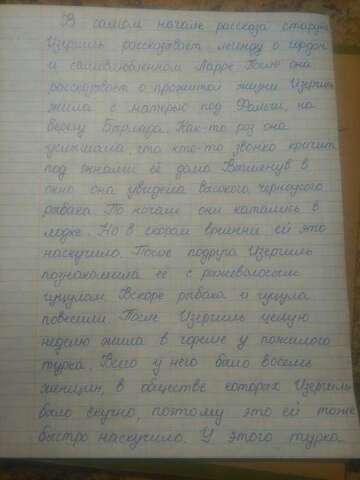 В самом начале рассказа старуха
Изергиль рассказывает легенду о гордом
и самовлюбленном Ларре. После она
рассказывает о прожитой жизни. Изергиль
жила с матерью под Фальчи, на
берегу Бырлада. Как-то раз она
услышала, что кто-то звонко кричит
под окнами её дома. Выглянув в
окно она увидела высокого, черноусого
рыбака. По ночам они катались в
лодке. Но в скором времени ей это
наскучило. После подруга Изергиль
познакомила её с рыжеволосым
гуцулом. Вскоре рыбака и гуцула
повесили. После Изергиль целую
неделю жила в гареме у пожилого
турка. Всего у него было восемь
женщин, в обществе которых Изергиль
было скучно, поэтому это ей тоже
быстро наскучило. У этого турка